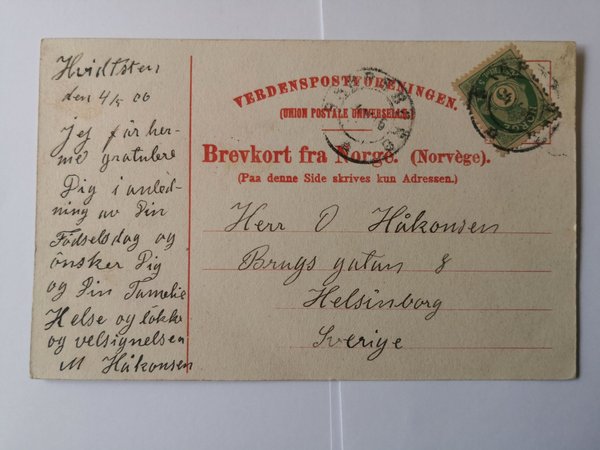 Hvidtsten
den 4/5 06
Jeg får her-
med gratulere
Dig i anled-
ning av Din
Födselsdag og
önsker Dig
og Din Famelie
Helse og lökke
og velsignelsen
M Håkonsen
VERDENSPOSTFORENINGEN.
(UNION POSTALE UNIVERSELLE)
Brevkort fra Norge. (Norvège).
(Paa denne Side skrives kun Adressen.)
Herr O Håkonsen
Brugs gatan 8
Helsinborg
Sverige